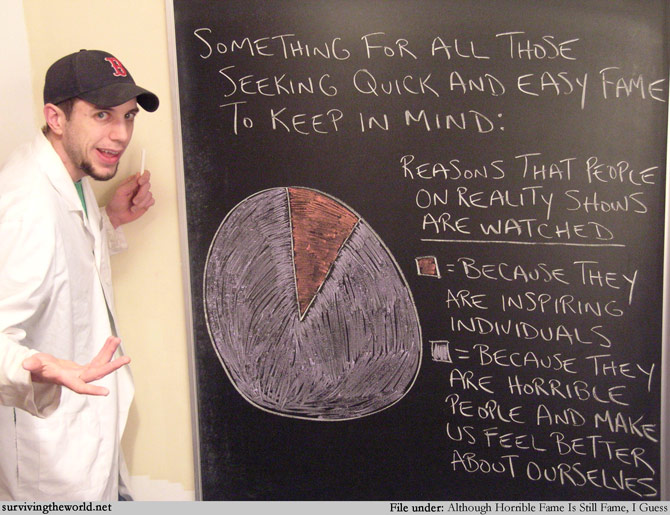 SOMETHING FOR ALL THOSE
SEEKING QUICK AND EASY FAME
TO KEEP IN MIND:
REASONS THAT PEOPLE
ON REALITY SHOWS
ARE WATCHED
= BECAUSE THEY
ARE INSPIRING
INDIVIDUALS
= BECAUSE THEY
ARE HORRIBLE
PEOPLE AND MAKE
US FEEL BETTER
ABOUT OURSELVES
B
survivingtheworld.net
File under: Although Horrible Fame Is Still Fame, I Guess